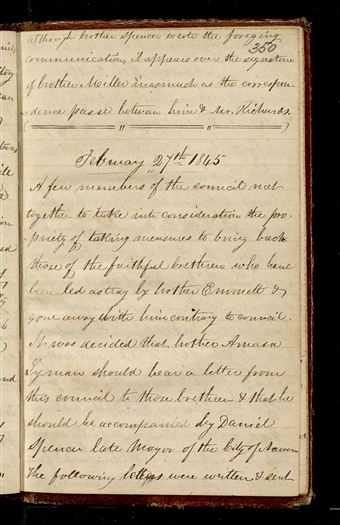 although brother Spencer wrote the foregoing
350
communication, it appears over the signature
of brother Miller inasmuch as the correspon-
dence passed between him & Mr. Richards.
February 27th 1845
A few members of the council met
together to take into consideration the pro-
priety of taking measures to bring back
those of the faithful brethren who have
been led astray by brother Emmett &
gone away with him contrary to council.
It was decided that brother Amasa
Lyman should bear a letter from
this council to those brethren & that he
should be accompanied by Daniel
Spencer late Mayor of the City of Nauvoo
The following letters were written & sent